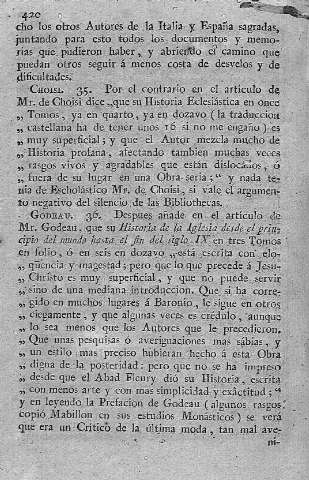 420
cho los otros Autores de la Italia y España sagradas,
juntando para esto todos los documentos y memo-
rias que pudieron haber, y abriendo el camino que
puedan otros seguir á menos costa de desvelos y de
dificultades.
CHOISI. 35. Por el contrario en el articulo de
Mr. de Choisi dice „que su Historia Eclesiástica en once
„ Tomos, ya en quarto, ya en dozavo (la traduccion
„ castellana ha de tener unos 16 si no me engaño) es
„ muy superficial; y que el Autor mezcla mucho de
„ Historia profana, afectando tambien muchas veces
„ rasgos vivos y agradables que están dislocados, ó
„ fuera de su lugar en una Obra seria;“ y nada te-
nia de Escholástico Mr. de Choisi, si vale el argumen-
to negativo del silencio de las Bibliothecas.
GODEAU. 36. Despues añade en el artículo de
Mr. Godeau, que su Historia de la Iglesia desde el prin-
cipio del mundo hasta el fin del siglo IX en tres Tomos
en folio, ó en seis en dozavo „está escrita con elo-
„ qüencia y magestad; pero que lo que precede á Jesu-
„ Christo es muy superficial, y que no puede servir
„ sino de una mediana introduccion. Que si ha corre-
„ gido en muchos lugares á Baronio, le sigue en otros
„ ciegamente, y que algunas veces es crédulo, aunque
„ lo sea menos que los Autores que le precedieron.
„ Que unas pesquisas ó averiguaciones mas sábias, y
„ un estilo mas preciso hubieran hecho á esta Obra
„ digna de la posteridad: pero que no se ha impreso
„ desde que el Abad Fleury dió su Historia, escrita
„ con menos arte y con mas simplicidad y exâctitud;“
y en leyendo la Prefacion de Godeau (algunos rasgos
copió Mabillon en sus estudios Monásticos) se verá
que era un Crítico de la última moda, tan mal ave-
ni-